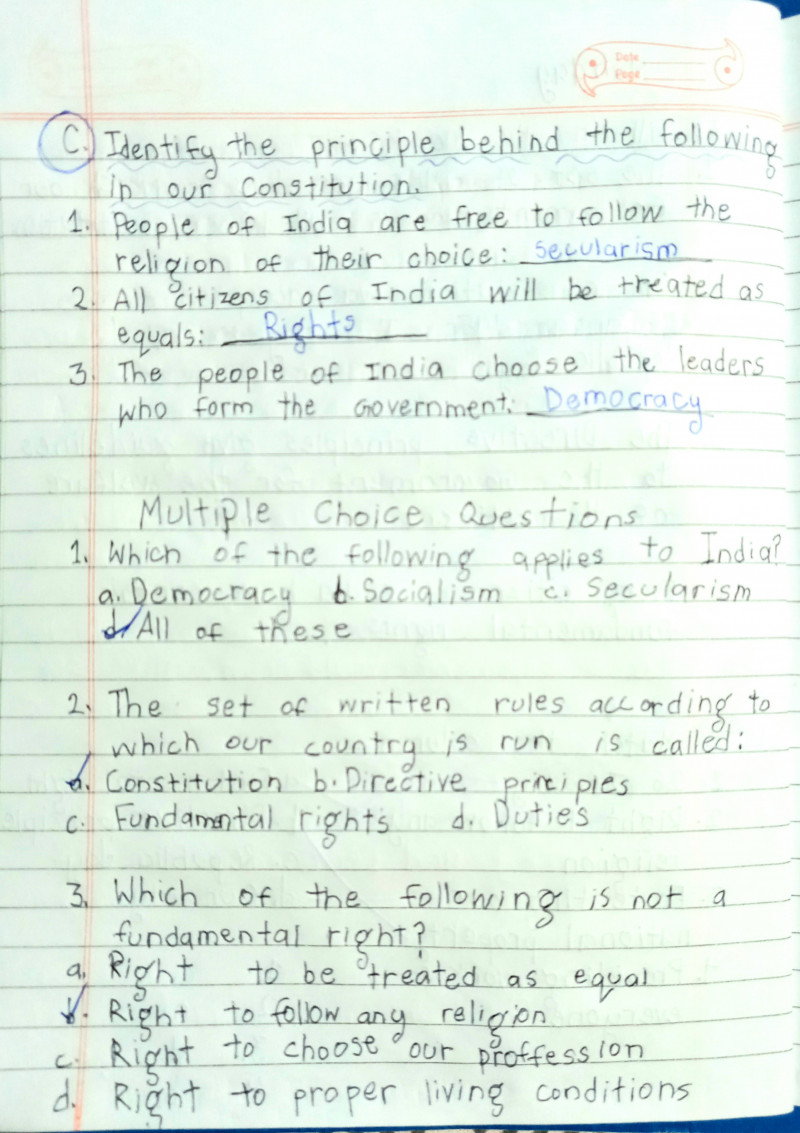 Date
Page
C. Identify the principle behind the following
in our Constitution.
1. People of India are free to follow the
religion of their choice: Secularism
2. All citizens of India will be treated as
equals: Rights
3. The people of India choose the leaders
who form the Government: Democracy
Multiple Choice Questions
1. Which of the following applies to India?
a. Democracy b. Socialism c. Secularism
d. All of these
2. The set of written rules according to
which our country is run is called:
a. Constitution b. Directive principles
c. Fundamental rights d. Duties
3. Which of the following is not a
fundamental right?
a. Right to be treated as equal
b. Right to follow any religion
c. Right to choose our proffession
d. Right to proper living conditions